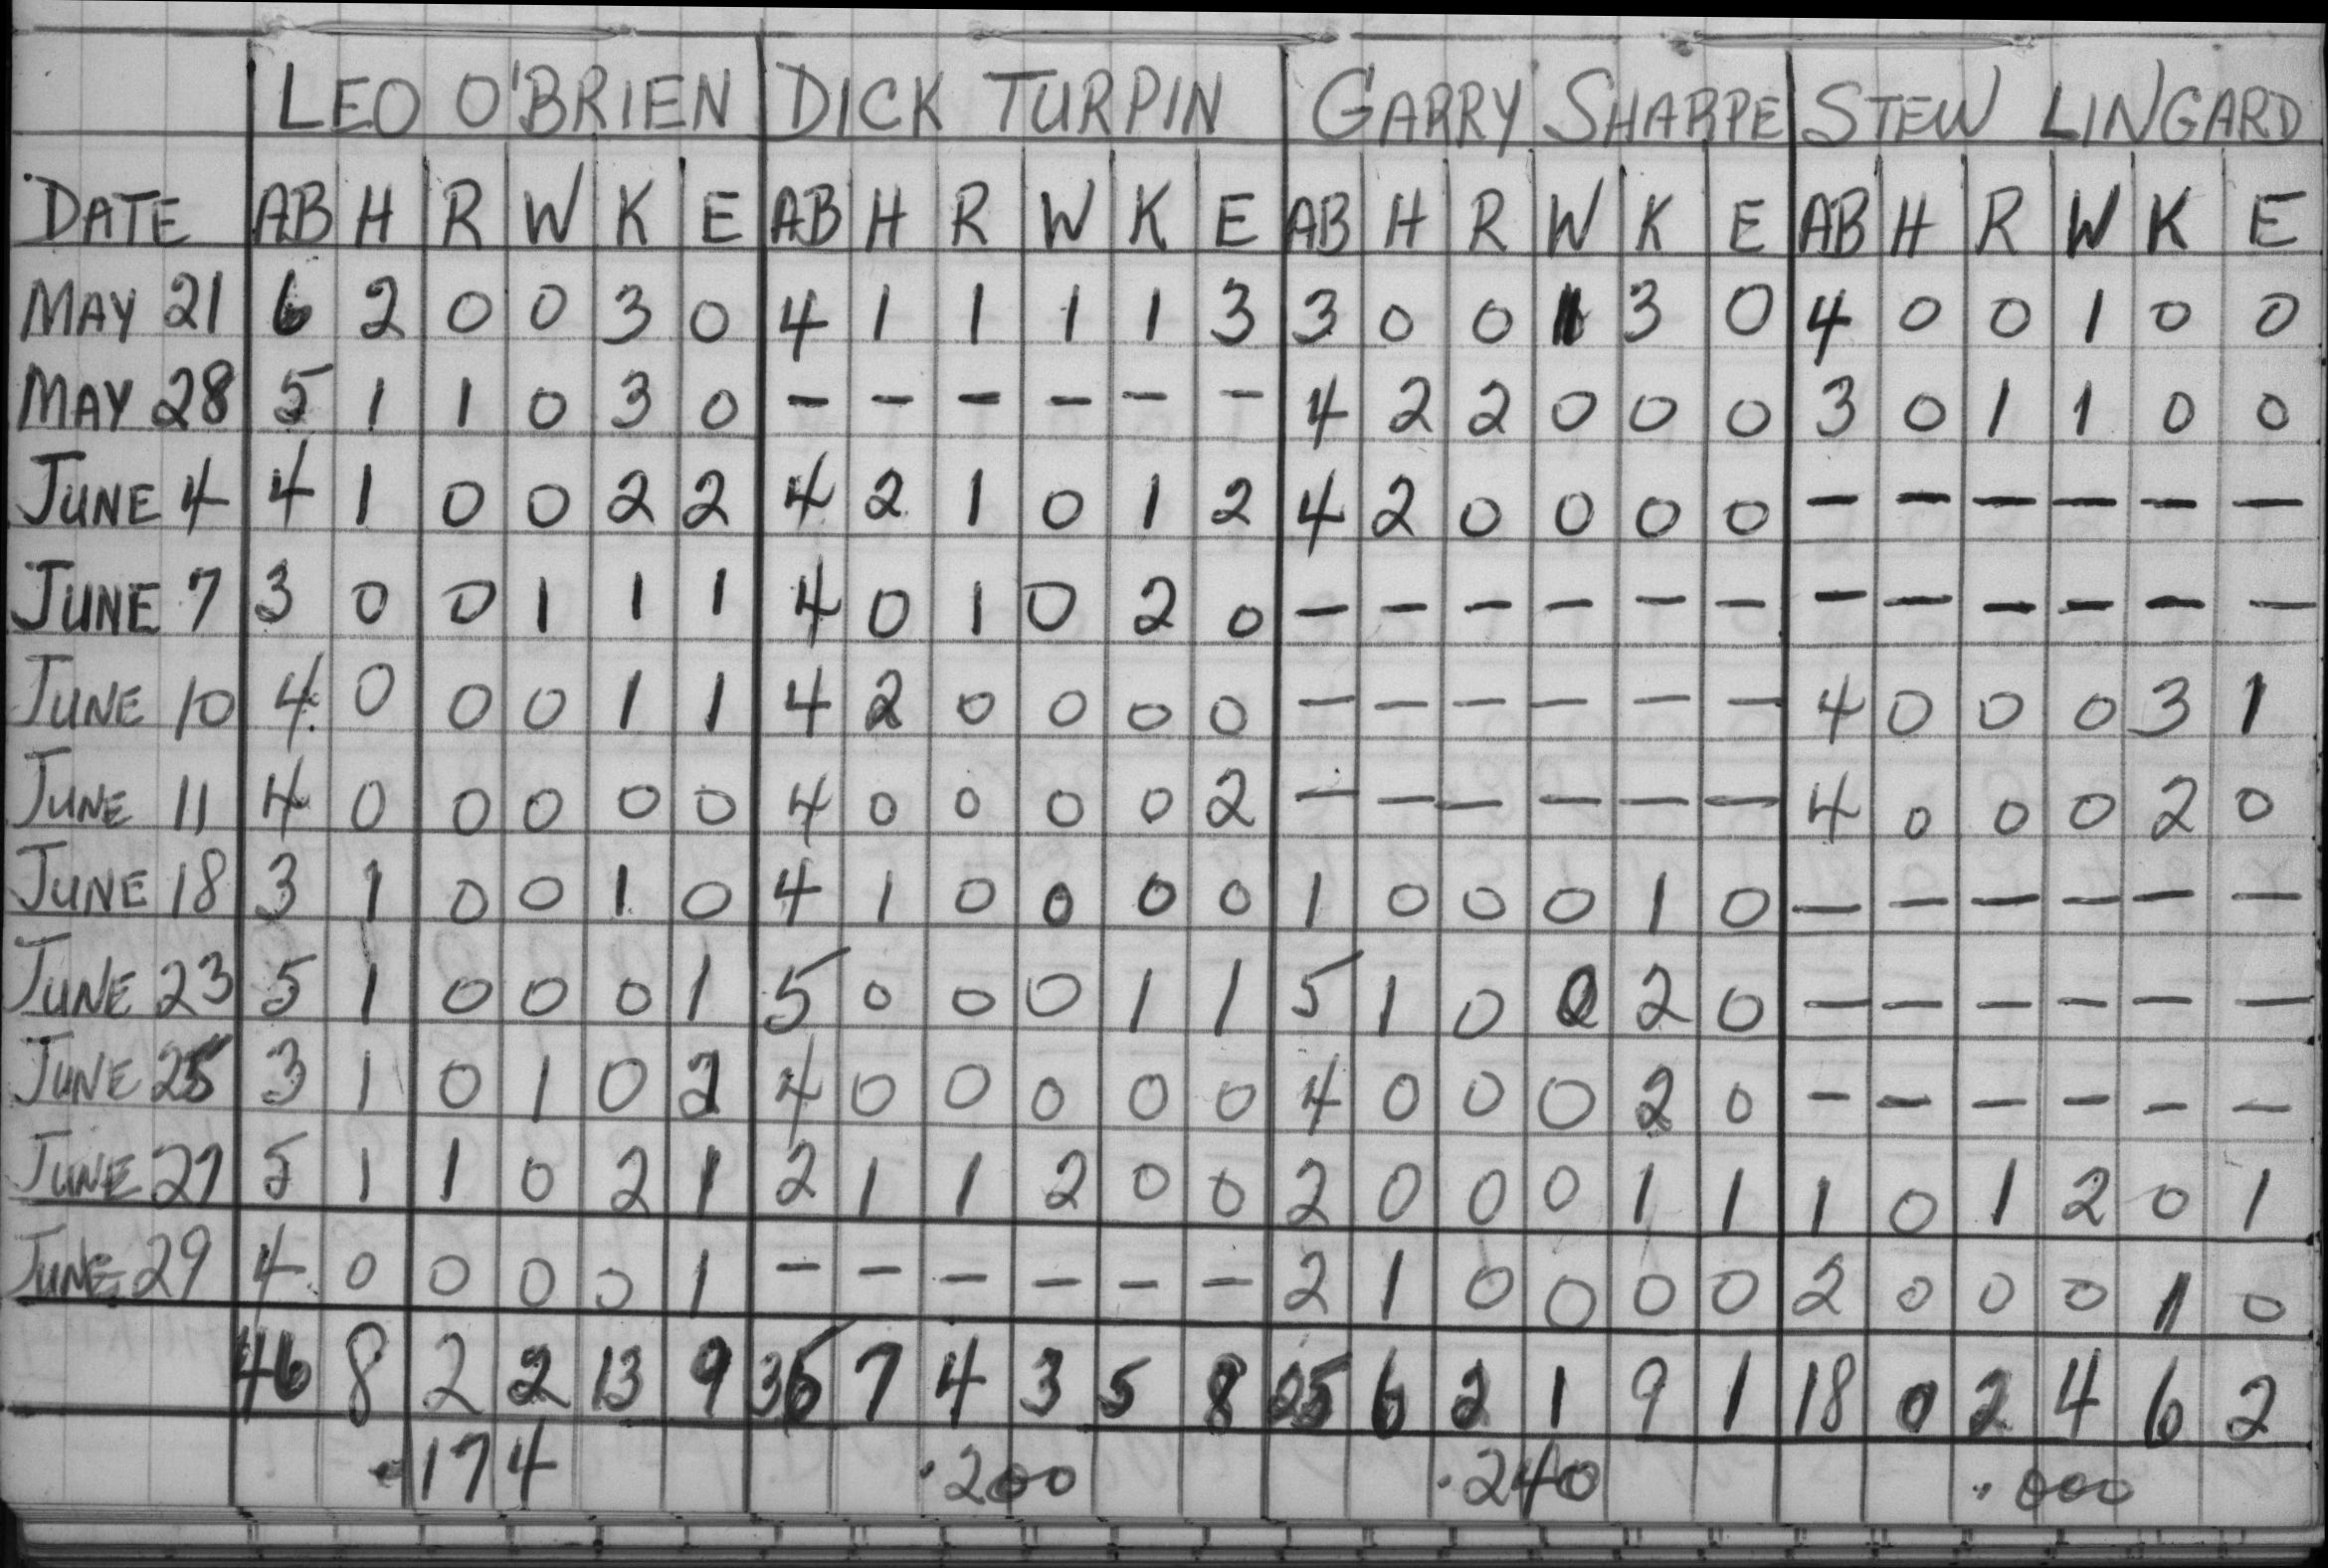 LEO O'BRIEN DICK TURPIN GARRY SHARPE STEW LINGARD
DATE AB H R W K E AB H R W K E AB H R W K E AB H R W K E
MAY 21 6 2 0 0 3 0 4 1 1 1 1 3 3 0 0 1 3 0 4 0 0 1 0 0
MAY 28 5 1 1 0 3 0 - - - - - - 4 2 2 0 0 0 3 0 1 1 0 0
JUNE 4 4 1 0 0 2 2 4 2 1 0 1 2 4 2 0 0 0 0 - - - - - -
JUNE 7 3 0 0 1 1 1 4 0 1 0 2 0 - - - - - - - - - - - -
JUNE 10 4 0 0 0 1 1 4 2 0 0 0 0 - - - - - - 4 0 0 0 3 1
JUNE 11 4 0 0 0 0 0 4 0 0 0 0 2 - - - - - - 4 0 0 0 2 0
JUNE 18 3 1 0 0 1 0 4 1 0 0 0 0 1 0 0 0 1 0 - - - - - -
JUNE 23 5 1 0 0 0 1 5 0 0 0 1 1 5 1 0 0 2 0 - - - - - -
JUNE 25 3 1 0 1 0 2 4 0 0 0 0 0 4 0 0 0 2 0 - - - - - -
JUNE 27 5 1 1 0 2 1 2 1 1 2 0 0 2 0 0 0 1 1 1 0 1 2 0 1
JUNE 29 4 0 0 0 0 1 - - - - - - 2 1 0 0 0 0 2 0 0 0 1 0
46 8 2 2 13 9 35 7 4 3 5 8 25 6 2 1 9 1 18 0 2 4 6 2
.174 .200 .240 .000